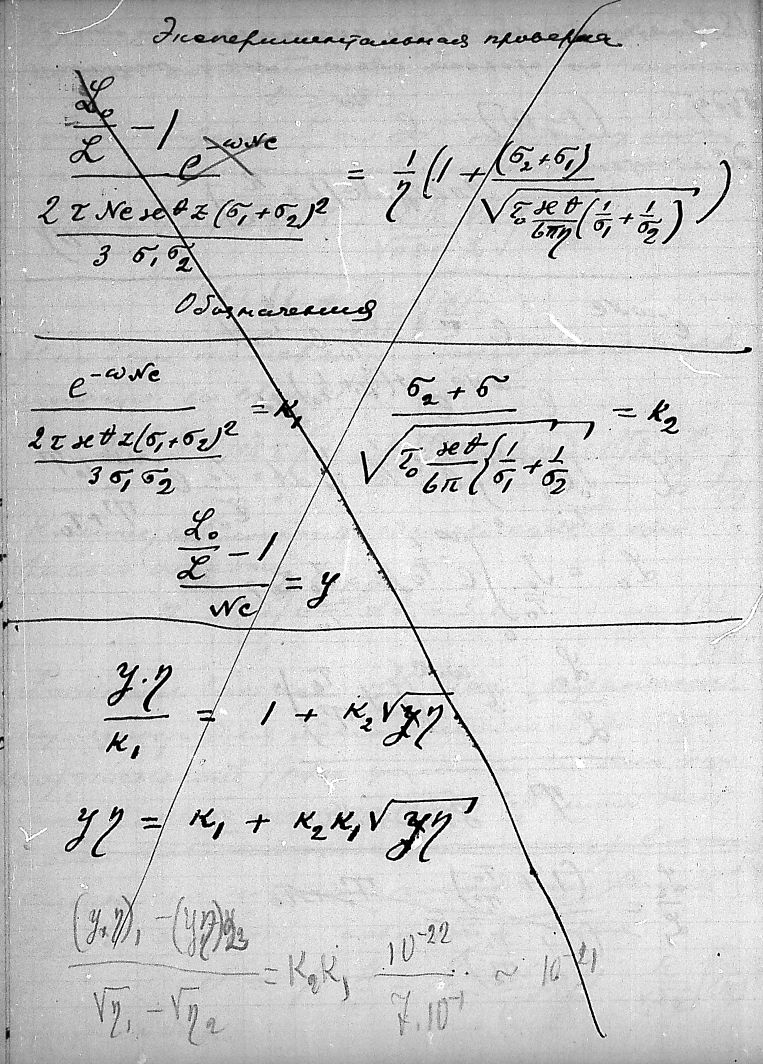 Экспериментальная проверка
(ℒ₀/ℒ − 1) e^{−ωNc} / (2τNcϰθz(σ₁+σ₂)² / 3σ₁σ₂) = 1/η (1 + (σ₂+σ₁) / √(τ₀ ϰθ/6πη (1/σ₁ + 1/σ₂)))
Обозначения
e^{−ωNc} / (2τϰθz(σ₁+σ₂)² / 3σ₁σ₂) = κ₁   (σ₂+σ) / √(τ₀ ϰθ/6π {1/σ₁ + 1/σ₂) = κ₂
(ℒ₀/ℒ − 1) / Nc = y
y·η / κ₁ = 1 + κ₂√η
yη = κ₁ + κ₂κ₁√η
((y₁η)₁ − (yη)₂₃) / (√η₁ − √η₂) = κ₂κ₁   10^{−22} / 7·10^{−1} ~ 10^{−21}